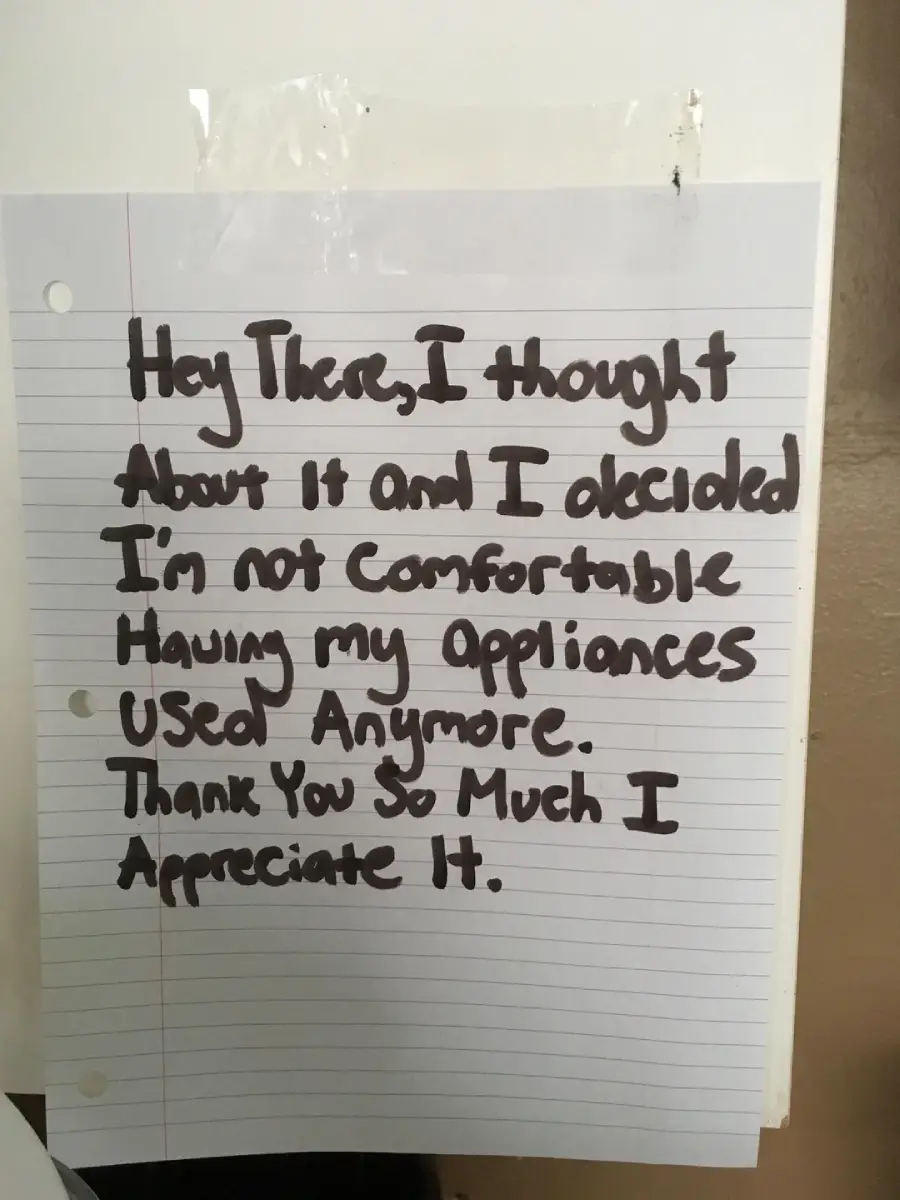 Hey There, I thought
About It and I decided
I'm not Comfortable
Having my appliances
Used Anymore.
Thank You So Much I
Appreciate It.